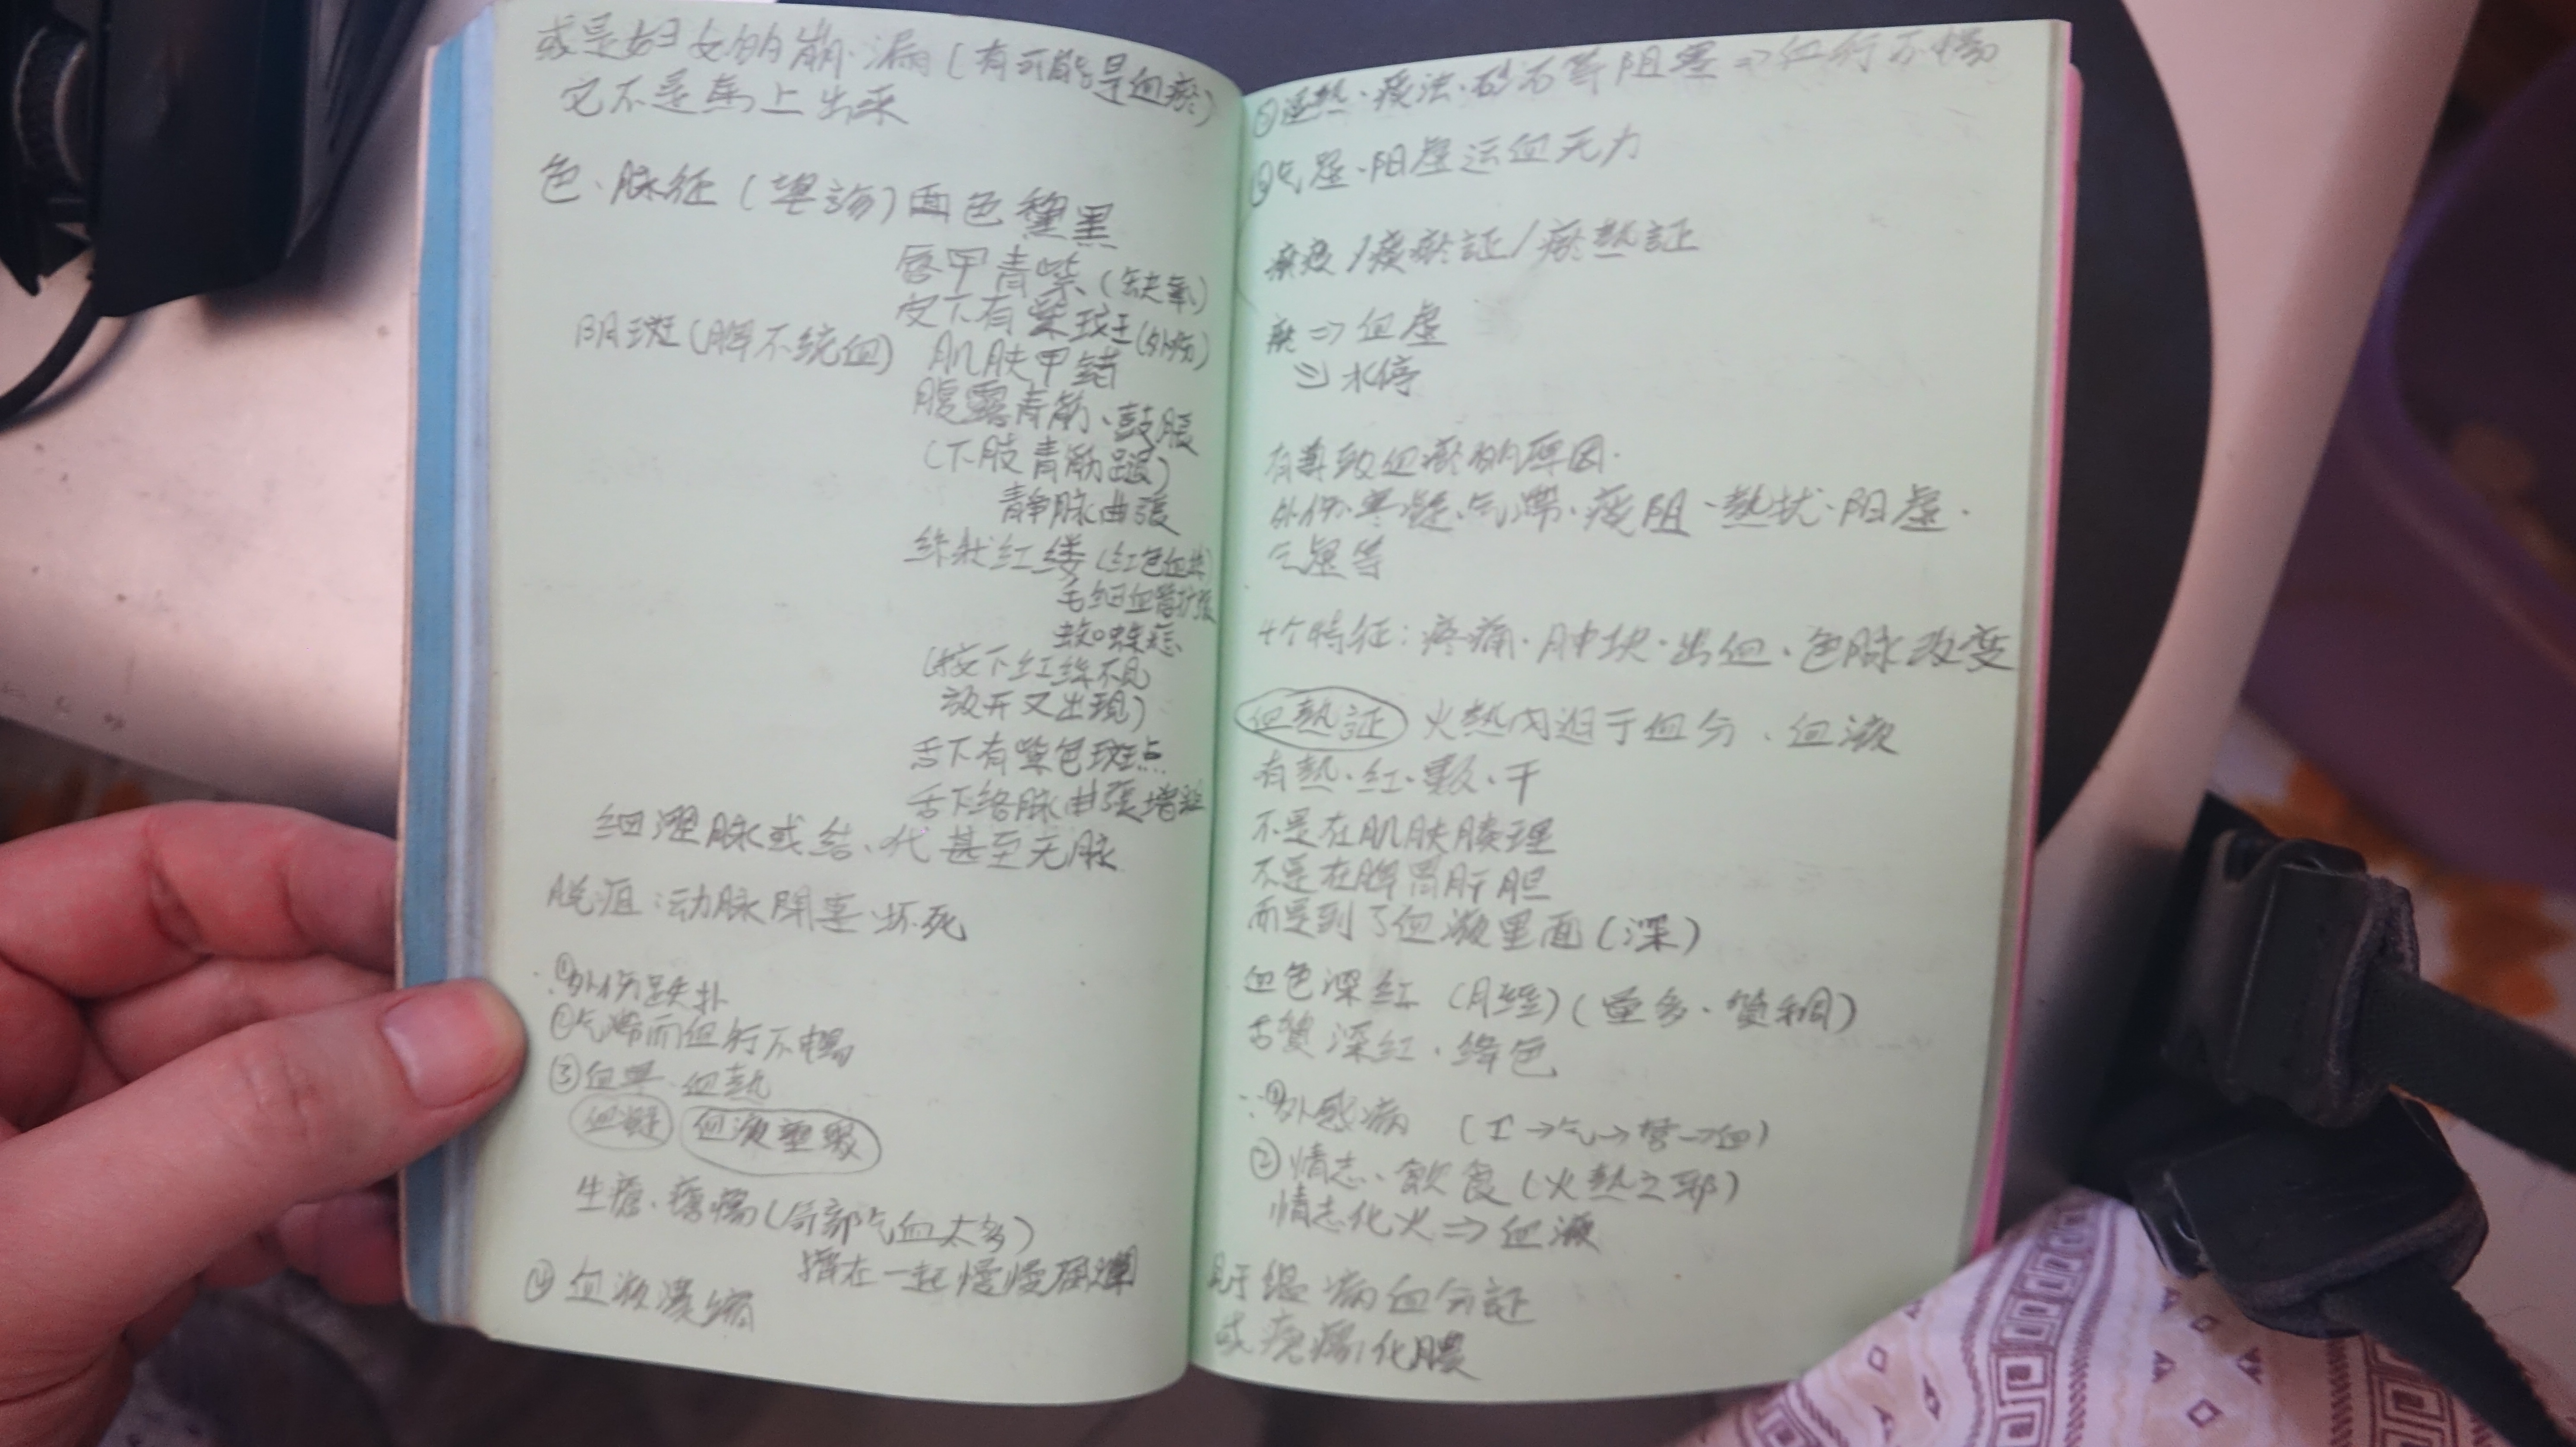 或是妇女的崩.漏(有可能是血瘀)
它不是馬上出来
色.脉征(望诊)面色黧黑
唇甲青紫(缺氧)
皮下有紫斑(外伤)
阴斑(脾不统血) 肌肤甲错
腹露青筋、鼓胀
(下肢青筋)
靜脉曲張
絲状红缕(红色血丝)
毛细血管扩張
蜘蛛痣
(按下红絲不见
放开又出現)
舌下有紫色斑点
舌下络脉曲張增粗
细涩脉或结.代甚至无脉
脱疽:动脉閉塞.坏死
∴①外伤跌扑
②气滞而血行不暢
③血寒.血熱
血凝 血液壅聚
生瘡.瘡瘍(局部气血太多)
擠在一起慢慢腐爛
④血液濃缩
⑤湿热.痰浊.砂石等阻塞⇒血行不暢
⑥气虚.阳虚运血无力
瘀痰/痰瘀証/瘀熱証
瘀⇒血虚
⇒水停
有導致血瘀的原因.
外伤.寒凝.气滞.痰阻.熱扰.阳虚.
气虚等
4个特征:疼痛.肿块.出血.色脉改变
血熱証 火熱内迫于血分.血液
有熱.红.數.干
不是在肌肤腠理
不是在脾胃肝胆
而是到了血液里面(深)
血色深红(月經)(量多.質稠)
舌質深红.绛色
∴①外感病 (卫→气→营→血)
②情志、飲食(火熱之邪)
情志化火⇒血液
見于温病血分証
或瘡瘍化膿